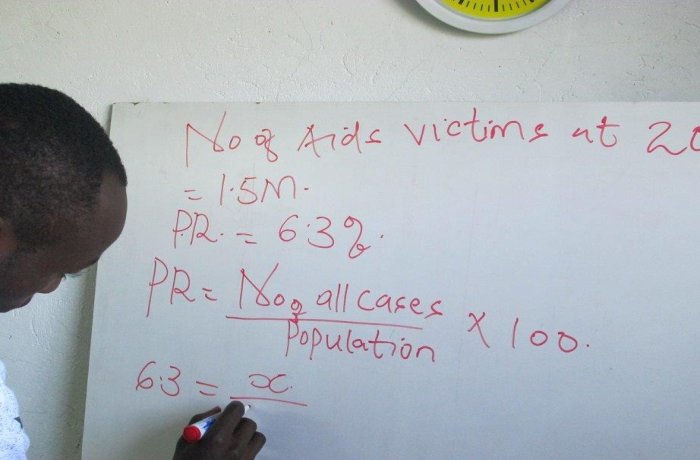 No of Aids victims at 20
= 1.5M.
P.R. = 6.3%.
PR = No of all cases
Population
X 100.
6.3 = x